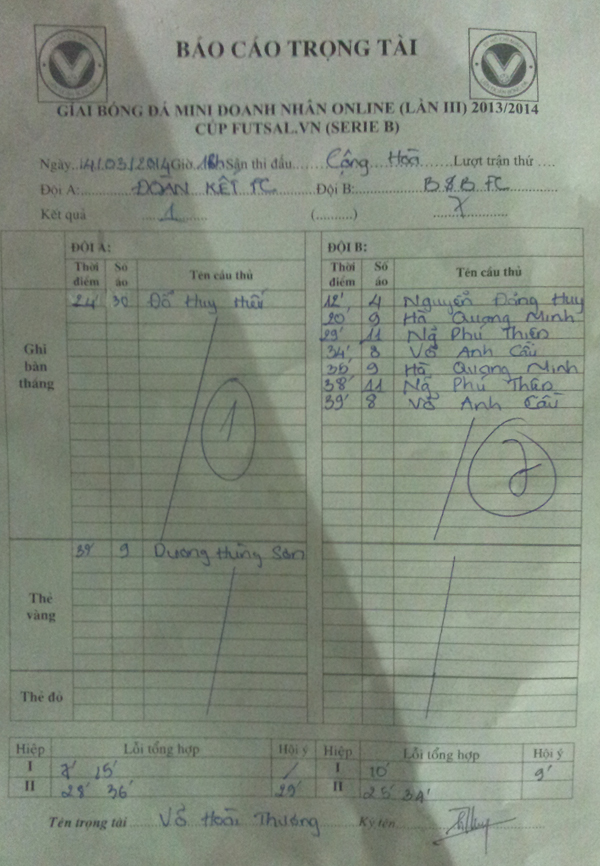 BÁO CÁO TRỌNG TÀI
GIẢI BÓNG ĐÁ MINI DOANH NHÂN ONLINE (LẦN III) 2013/2014
CÚP FUTSAL.VN (SERIE B)
Ngày 14/03/2014 Giờ 18h Sân thi đấu Cộng Hoà Lượt trận thứ ....
Đội A: ĐOÀN KẾT FC Đội B: B&B FC
Kết quả 1 (..........) 7
ĐỘI A: ĐỘI B:
Thời điểm Số áo Tên cầu thủ Thời điểm Số áo Tên cầu thủ
Ghi bàn thắng
24' 30 Đỗ Huy 12' 4 Nguyễn Đăng Huy
20' 9 Hà Quang Minh
29' 11 Phú Thiện
34' 8 Võ Anh Cầu
9 Hà Quang Minh
38' 11 Phú Thiện
39' 8 Võ Anh Cầu
1 7
Thẻ vàng
9 Dương Hùng Sơn
Thẻ đỏ
Hiệp Lỗi tổng hợp Hội ý Hiệp Lỗi tổng hợp Hội ý
I 7' 15' / I 10' 9'
II 28' 36' 29' II 25' 34'
Tên trọng tài Võ Hoài Thương Ký tên